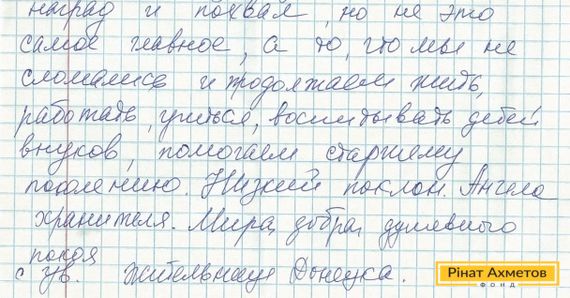 наград и похвал, но не это
самое главное, а то, что мы не
сломались и продолжаем жить,
работать, учиться, воспитывать детей
внуков, помогаем старшему
поколению. Низкий поклон. Ангела
хранителя. Мира, добра, душевного
покоя
с ув. жительница Донецка.
Рінат Ахметов
ФОНД